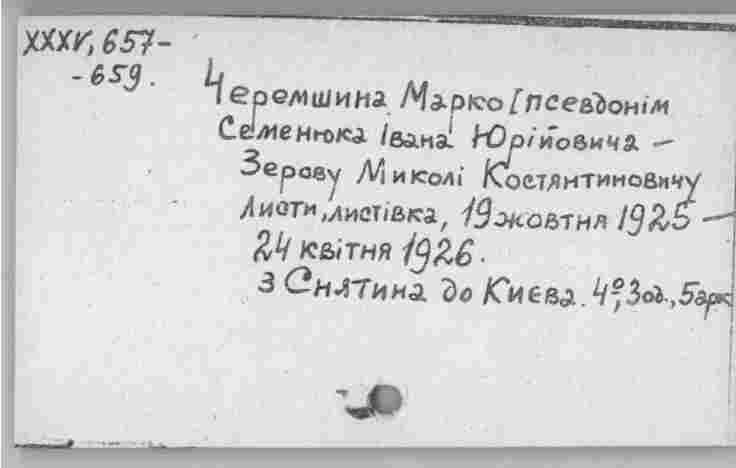 XXXV, 657-
-659.
Черемшина Марко [псевдонім
Семенюка Івана Юрійовича –
Зерову Миколі Костянтиновичу
Листи, листівка, 19 жовтня 1925 –
24 квітня 1926.
з Снятина до Києва. 4º, 3 од., 5 арк